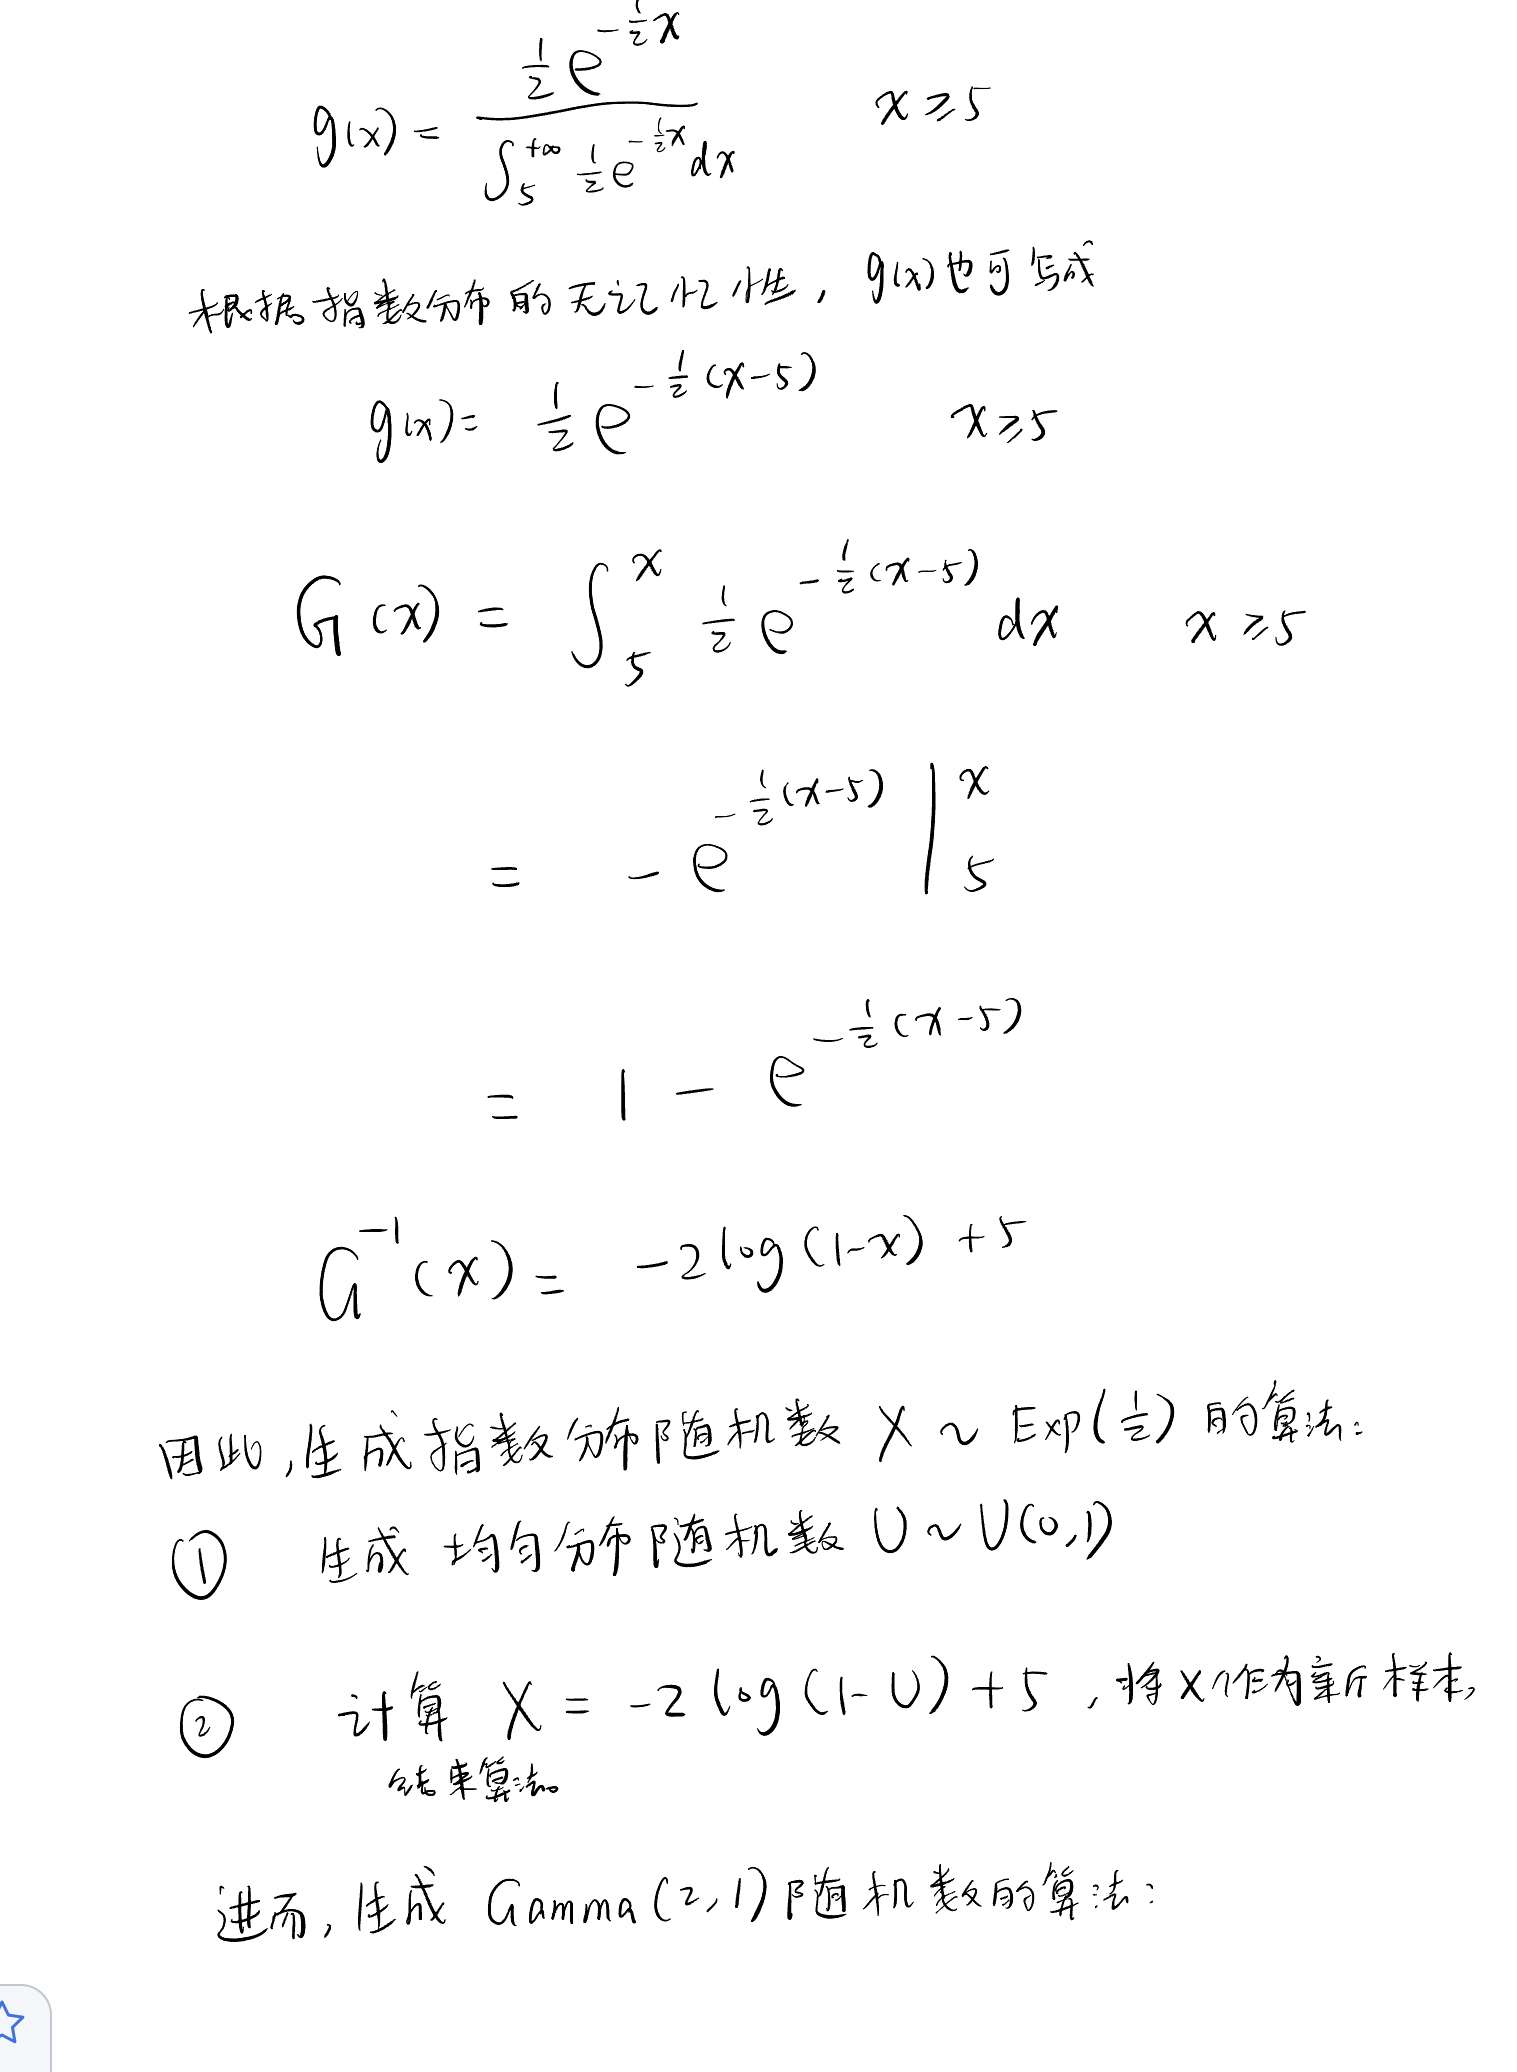 g(x) = \frac{\frac{1}{2} e^{-\frac{1}{2}x}}{\int_5^{+\infty} \frac{1}{2} e^{-\frac{1}{2}x} dx} x ⩾ 5
根据指数分布的无记忆性, g(x)也可写成
g(x) = \frac{1}{2} e^{-\frac{1}{2}(x-5)} x ⩾ 5
G(x) = \int_5^x \frac{1}{2} e^{-\frac{1}{2}(x-5)} dx x ⩾ 5
= - e^{-\frac{1}{2}(x-5)} |_5^x
= 1 - e^{-\frac{1}{2}(x-5)}
G^{-1}(x) = -2 log(1-x) + 5
因此, 生成指数分布随机数 X ~ Exp(\frac{1}{2}) 的算法:
① 生成 均匀分布随机数 U ~ U(0,1)
② 计算 X = -2 log(1-U) + 5, 将X作为新样本,
结束算法。
进而, 生成 Gamma(2,1)随机数的算法: